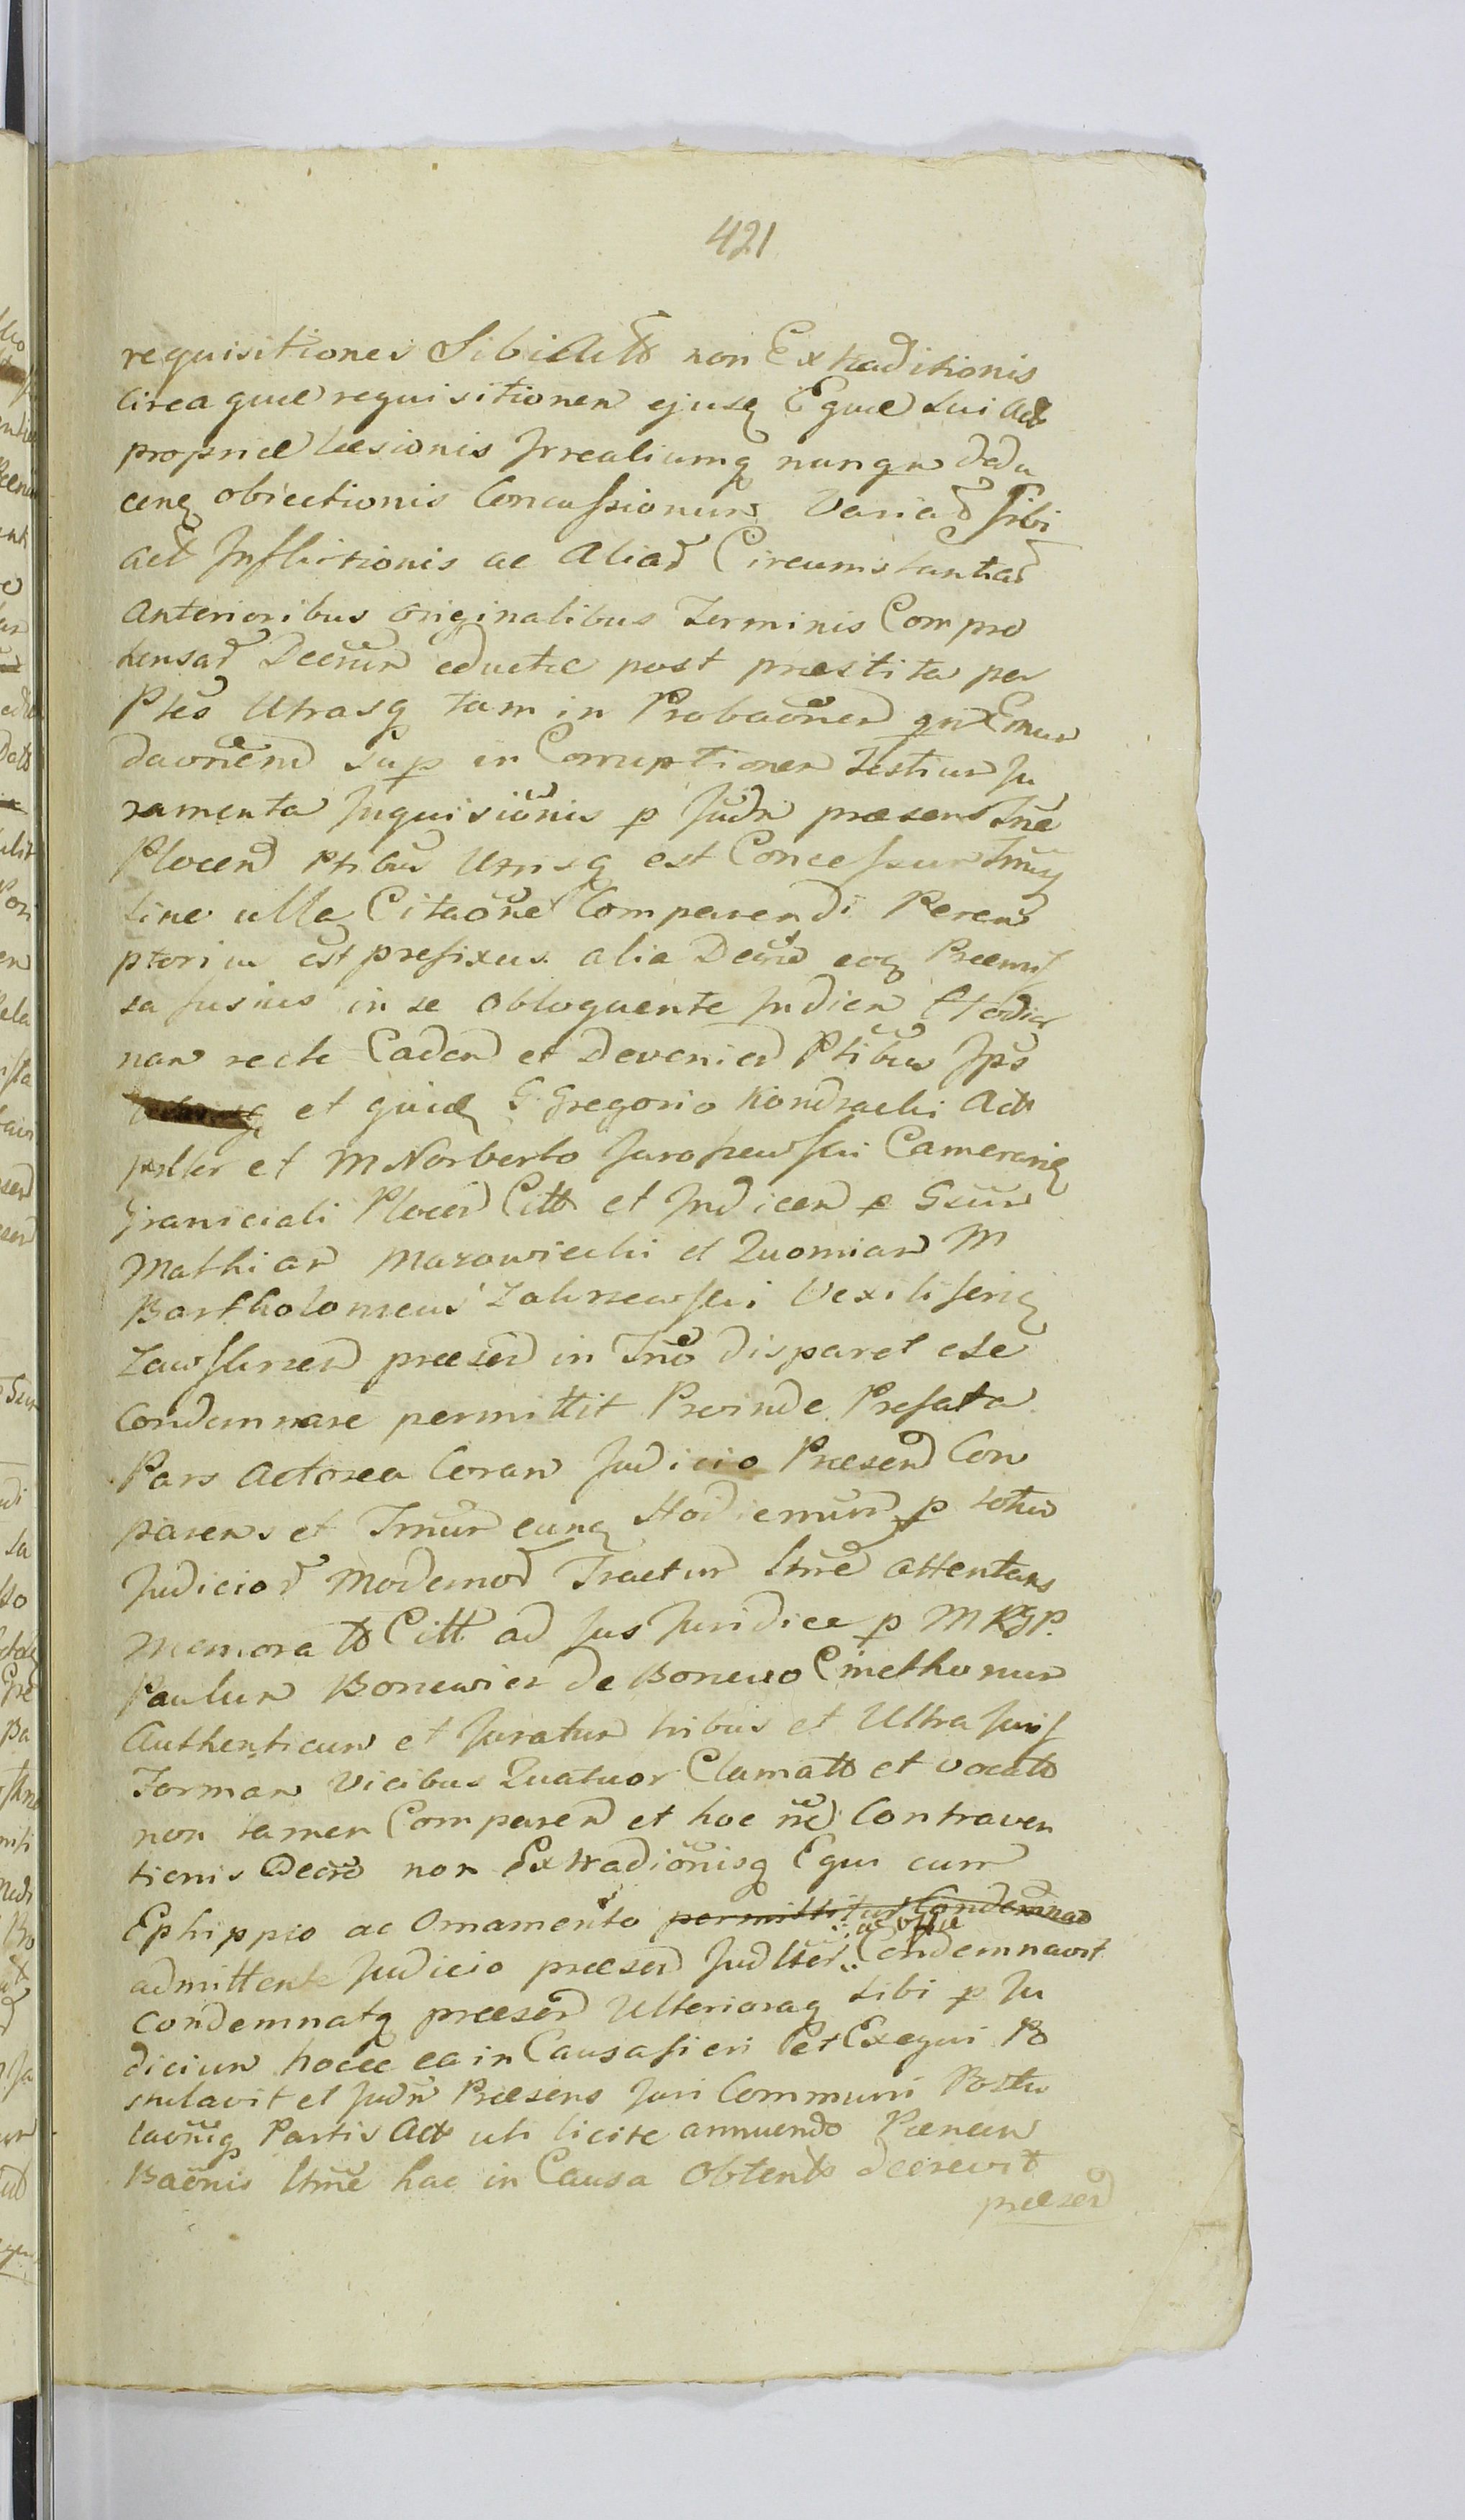 421
requisitiones Sibi Actt non Extraditionis
circa quæ requisitionem ejusq Equæ sui Act
propriæ Læsionis Irrealiumq nunqu dedu
cenq obiectionis Concussionum Variað sibi
act Inflictionis ac Aliað Circumstantiað
Anterioribus Originalibus Terminis Compre
hensað Decrum eductæ post præstita per
Ptes Utrasq tam in Probaonem qu Emun
daonem sup in Corruptionem Testium Ju
ramenta Inquisionis p Judm præsens Tne
Plocen Ptibus Utrisq est Concessum Tmusq
sine ulla Citaone Comparendi Perem
ptorius est prefixus alia Decro eoq Præmis
sa fusius in se obloquente Indien Hodier
nam recte Caden et Devenien Ptibus Ips
et quidq G Gregorio Kondracki Act
psltr et M Norberto Jaroszewski Camerariq
Graniciali Plocen Citt et Judicem p Gsum
Mathiam Mazowiecki et Quoniam M
Bartholomeus Zakrzewski Vexiliferiq
Zawskrzen præsen in Tno disparet ese
Condemnare permittit Proinde Prefata
Pars Actorea Coram Judicio Præsen Com
parens et Tmum eunq Hodiernum p totum
Judicioð Modernoð Tractum ltme attentans
Memoratt Citt ad Jus Juridice p MRGP.
Paulum Boniewicz de Boniewo Cmethonum
Authenticum et Juratum tribus et Ultra Juris
Formam Vicibus Quatuor Clamatt et vocatt
non tamen Comparen et hoc ne Contraven
tionis Decro non Extradionisq Equi cum
Ephippio ac Ornamento permittitur Condemnað
admittente Judicio præsen Judlter :ac offe: Condemnavit
Condemnatq præsen Ulterioraq sibi p Ju
dicium hocce ea in Causa fieri et Exequi Po
stulavit et Judm Præsens Juri Communi Postu
laoniq Partis Act uti licite annuendo Pænam
Baonis ltme hac in Causa Obtent decrevit
præsen